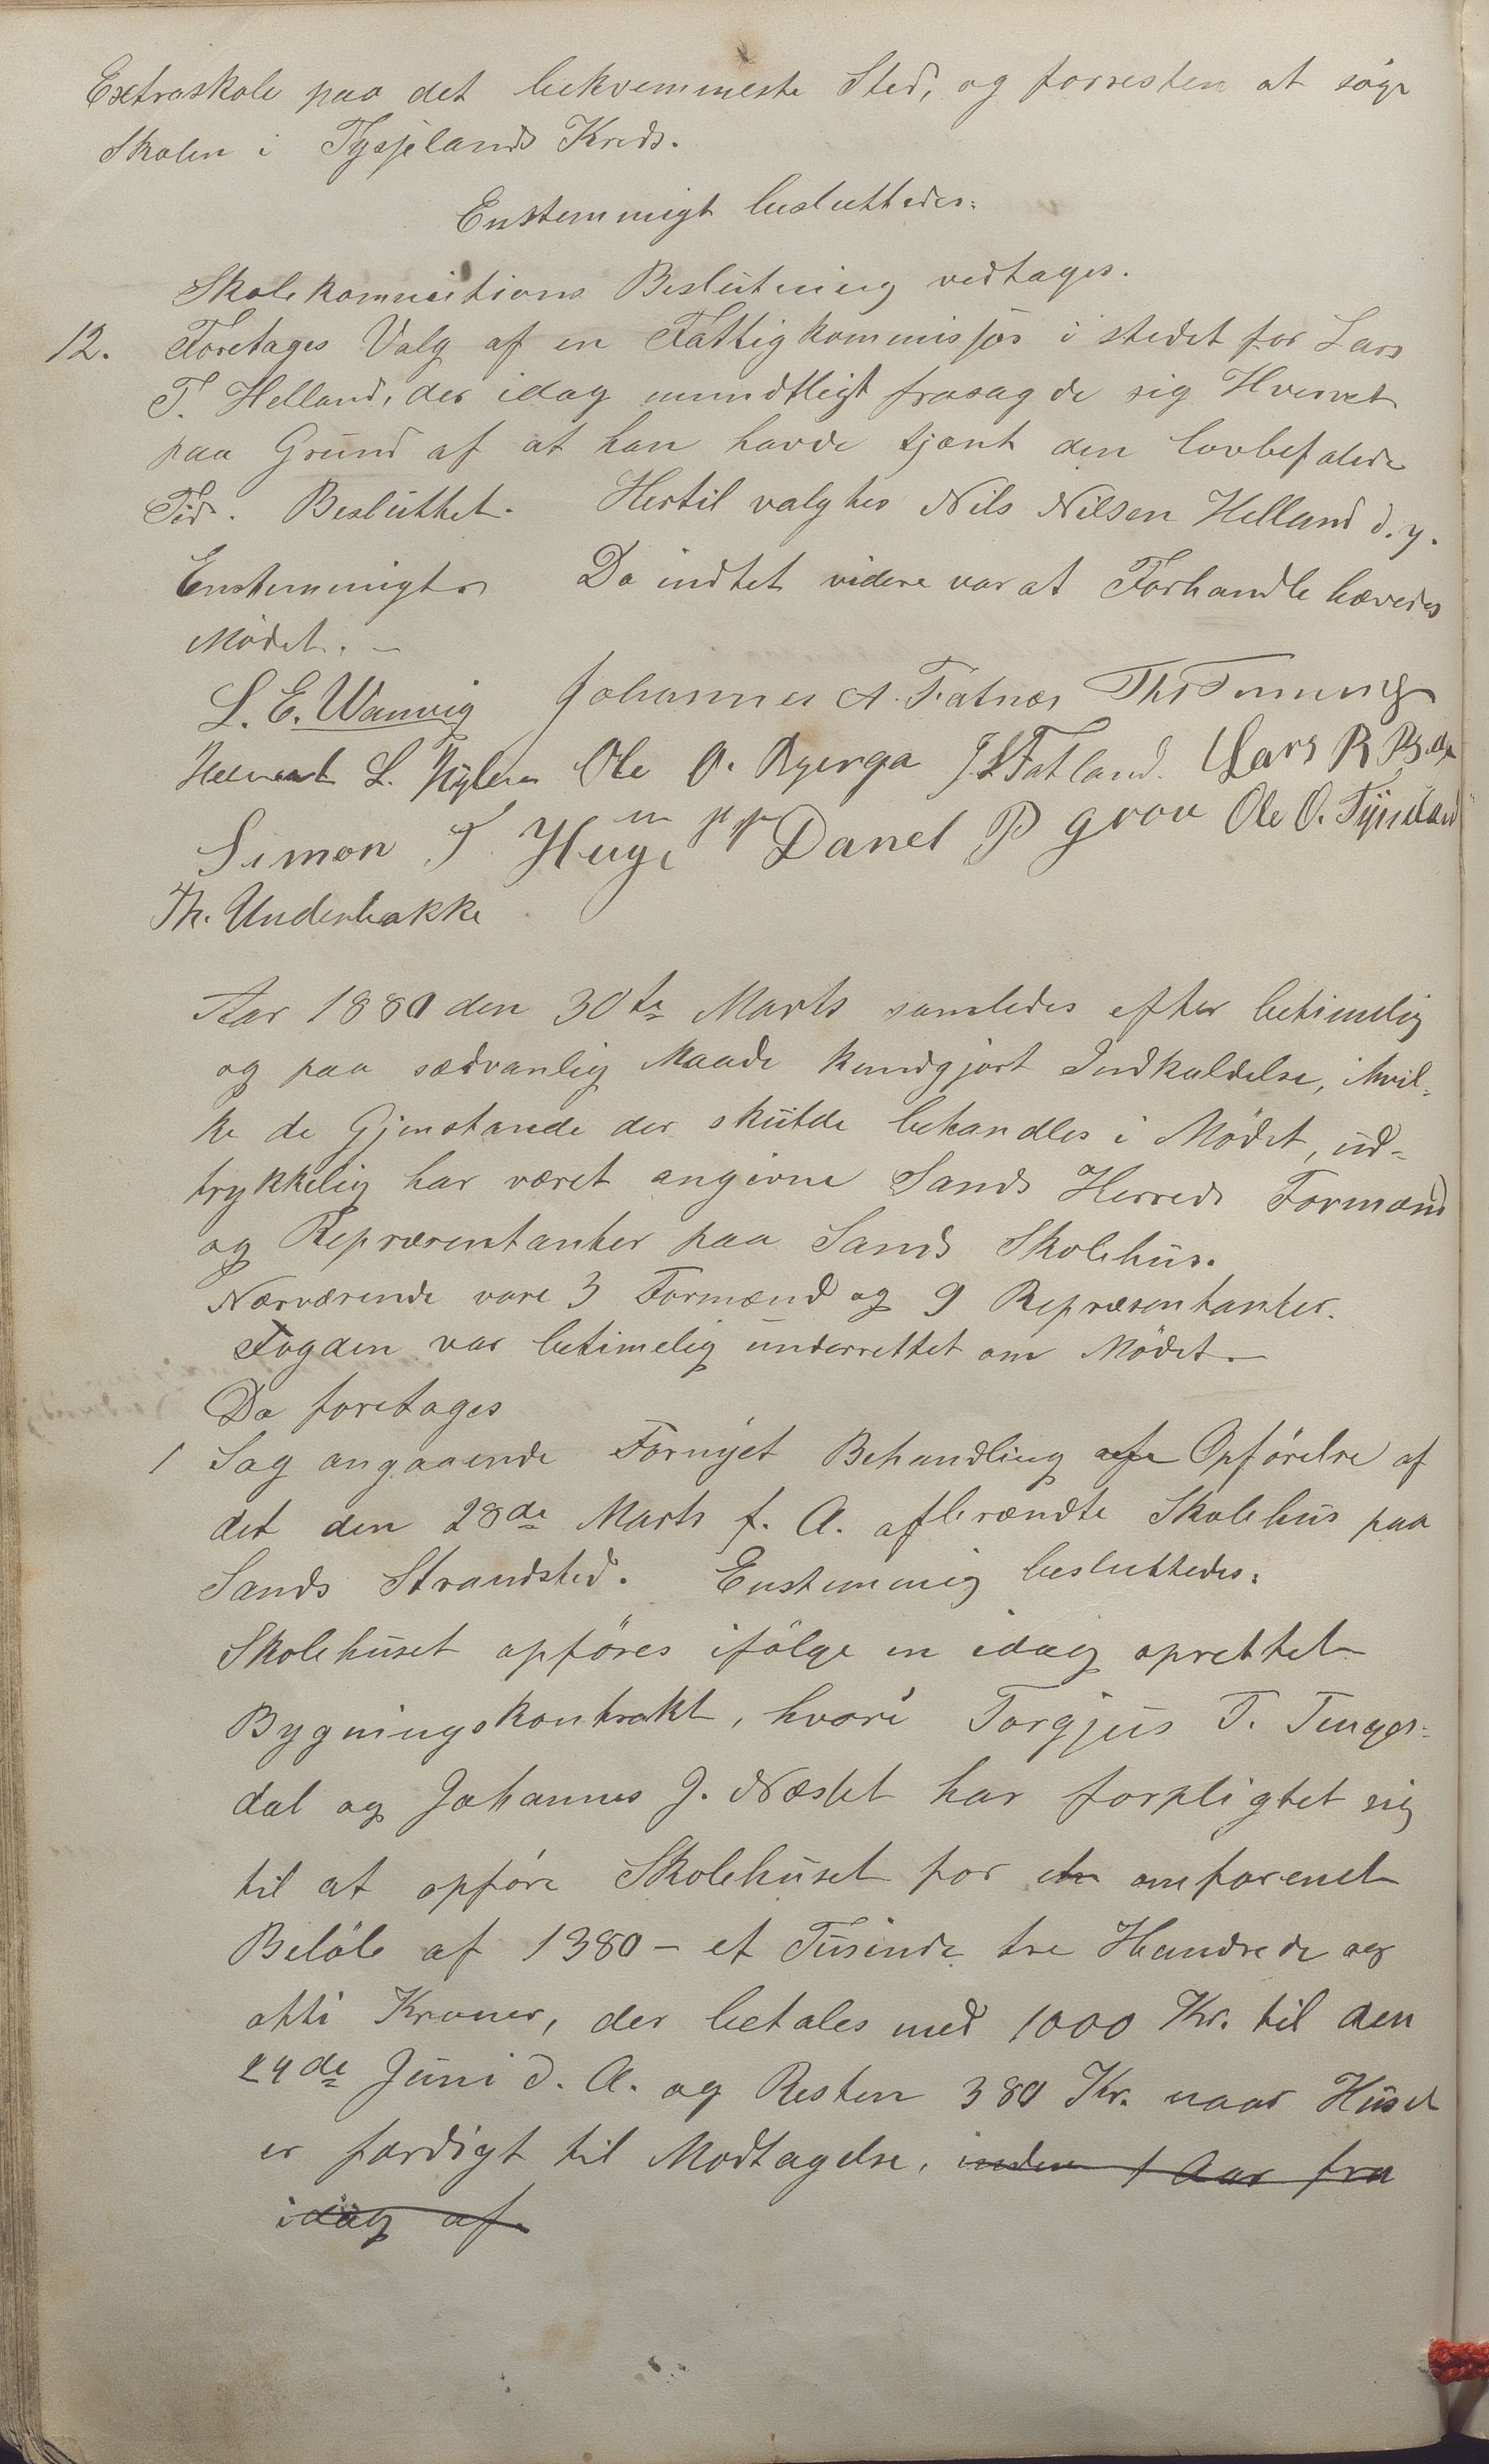 Extraskole paa det bekvemmeste Sted, og forresten at søge
Skolen i Tysselands Kreds.
Enstemmigt besluttedes:
Skolekommistions Beslutning vedtages.
12. Foretages Valg af en Fattigkommissjør i stedet for Lars
T. Helland, der idag mundtligt frasagde sig Hvervet
paa Grund af at han havde tjent den lovbefalede
Tid. Besluttet. Hertil valgtes Nils Nilsen Helland d. y.
Enstemmigt. Da indtet videre var at Forhandle hævedes
Mødet. —
L. E. Wamvig Johannes A. Fatnes
L. Ole O. J. L Fatland. Lars R
Simon T. Huge Danel P grov Ole O.
Th. Underbakke
Aar 1880 den 30te Marts samledes efter betimelig
og paa sædvanlig Maade kundgjort Indkaldelse, i hvil-
ke de Gjenstande der skulde behandles i Mødet, ud-
trykkelig har været angivne Sands Herreds Formænd
og Repræsentanter paa Sands Skolehus.
Nærværende vare 3 Formænd og 9 Repræsentanter.
Fogden var betimelig underrettet om Mødet. —
Da foretages
1 Sag angaaende Fornyet Behandling Opførelse af
det den 28de Marts f. A. afbrændte Skolehus paa
Sands Strandsted. Enstemmig besluttedes:
Skolehuset opføres ifølge en idag oprettet
Bygningskontrakt, hvori Torgjus T. Tengs-
dal og Johannes J. Næstet har forpligtet sig
til at opføre Skolehuset for omforenet
Beløb af 1380 — et Tusinde tre Hundrede og
otti Kroner, der betales med 1000 Kr. til den
24de Juni d. A. og Resten 380 Kr. naar Huset
er færdigt til Modtagelse, inden 1 Aar fra
idag af.